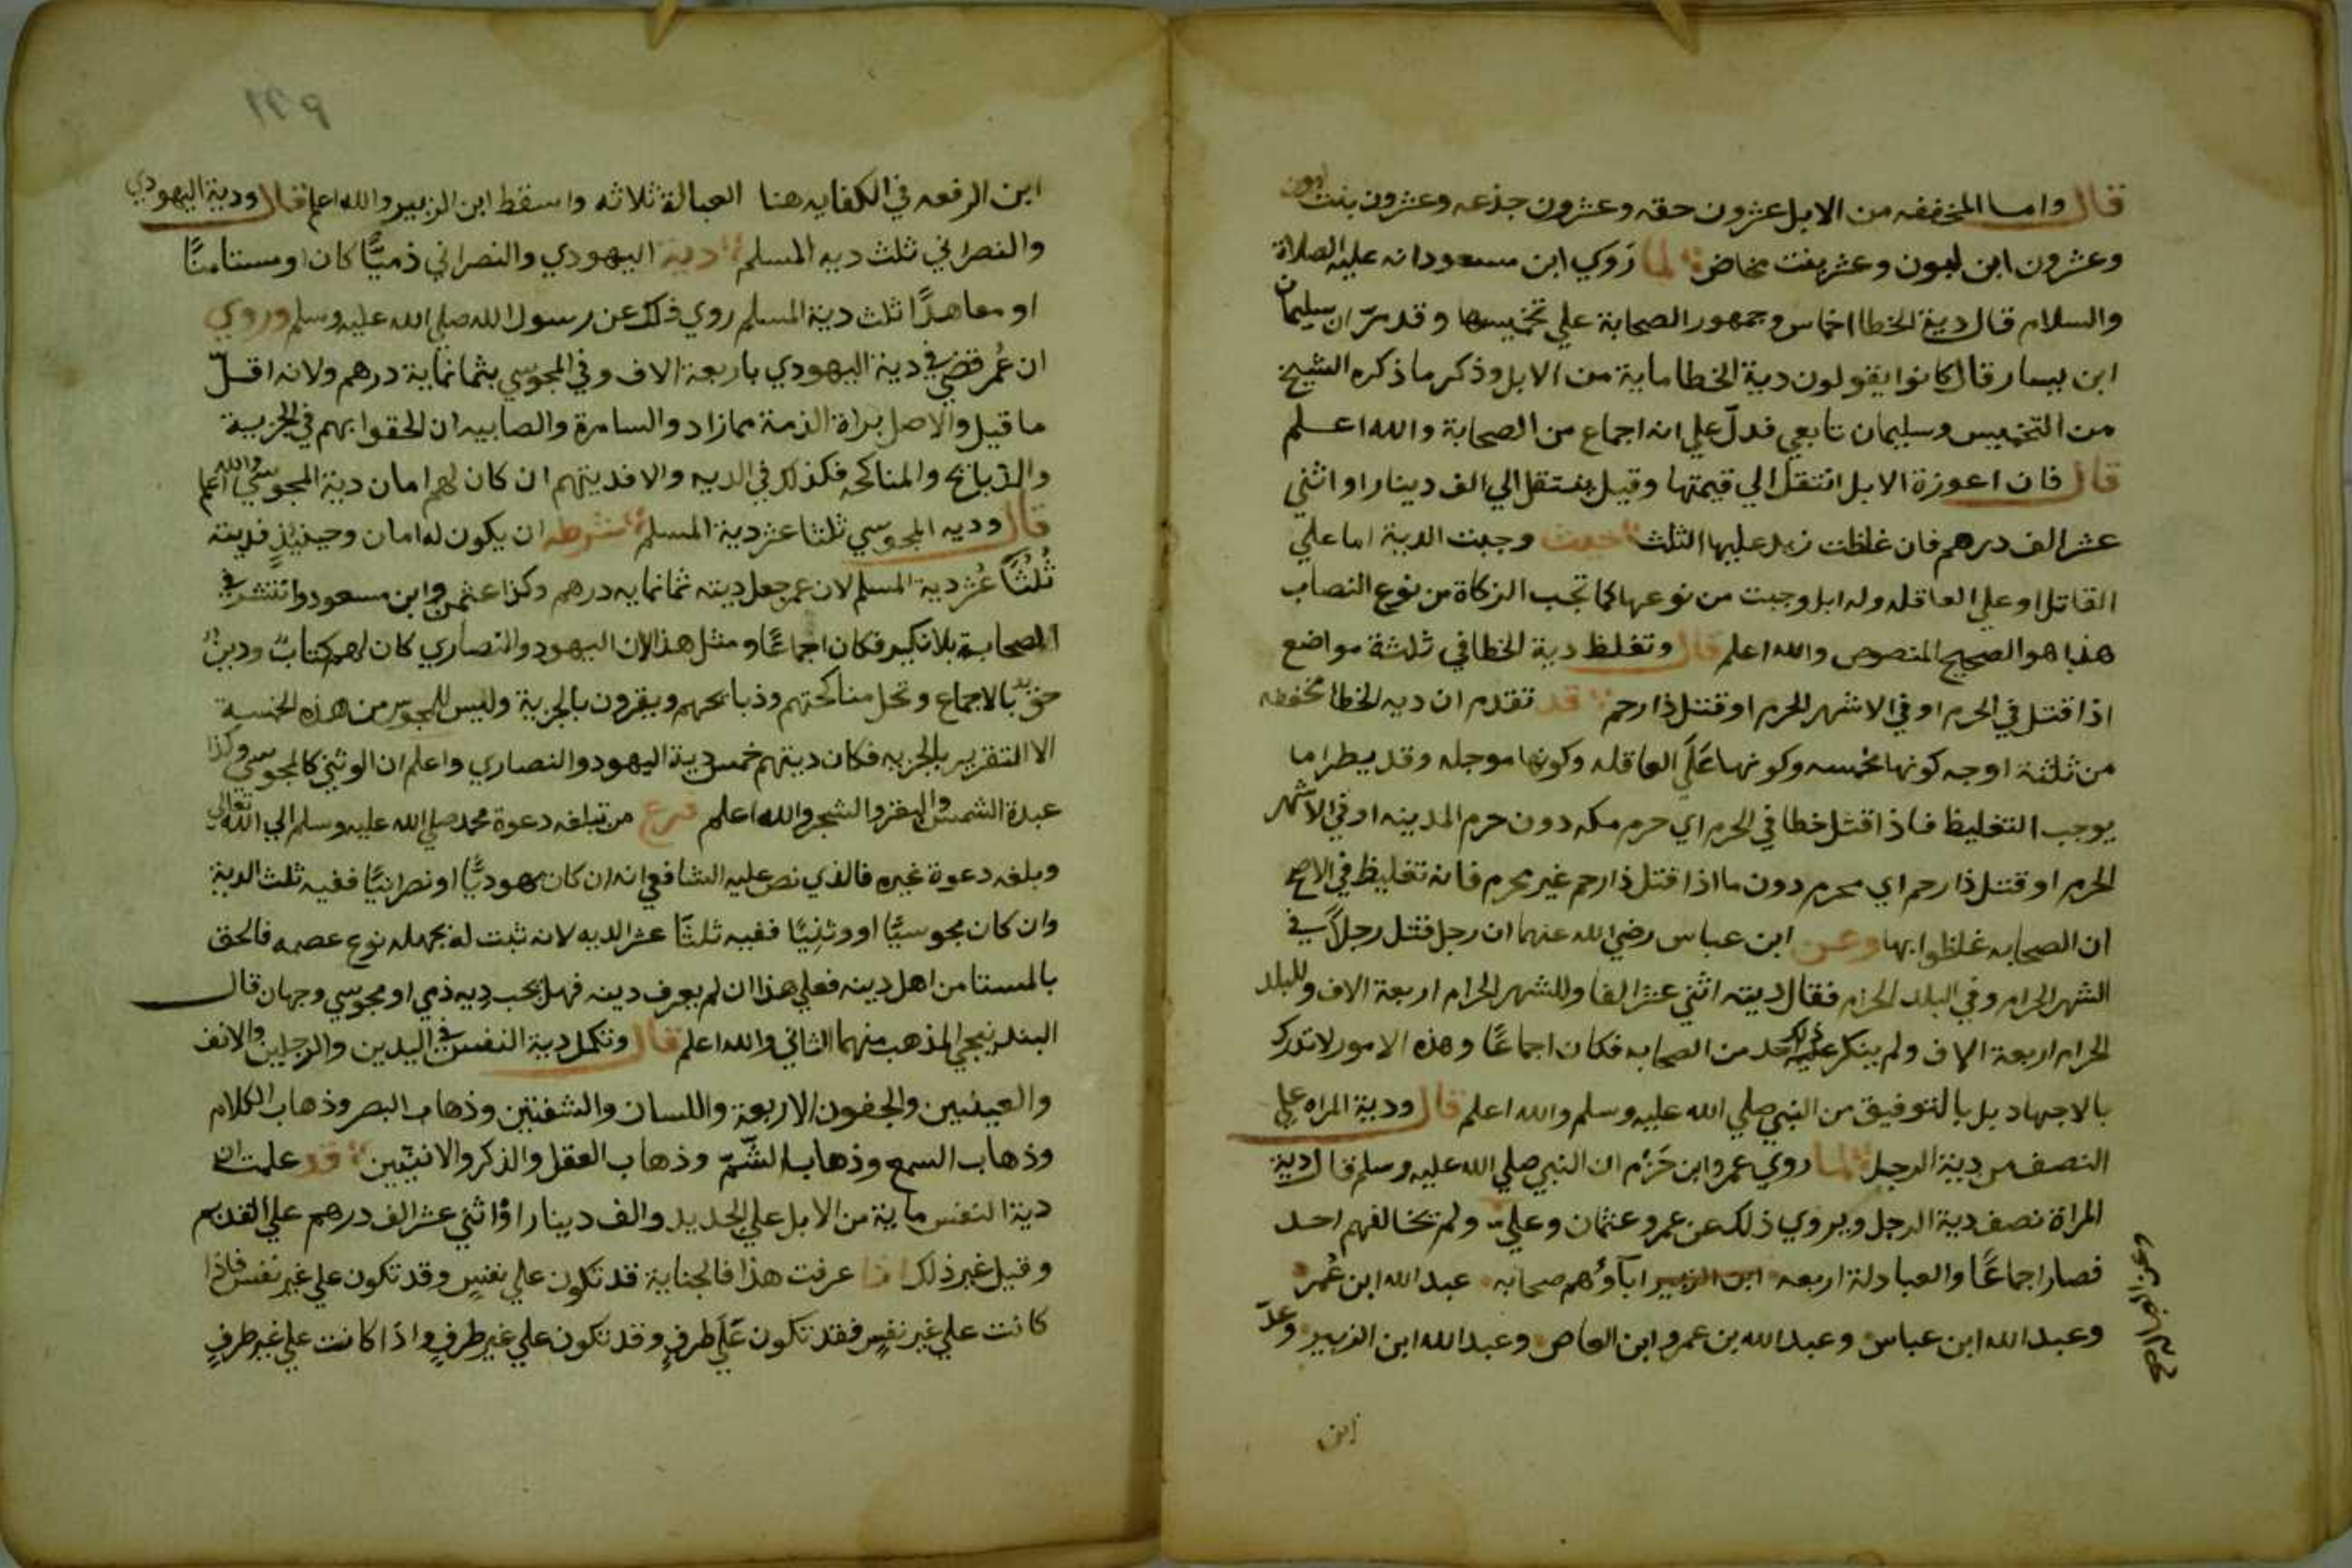 قال واما المخففه من الابل عشرون حقه وعشرون جذعه وعشرون بنت لبون
وعشرون ابن لبون وعشر بنت مخاض لما روي ابن مسعود انه عليه الصلاة
والسلام قال دية الخطا اخماس وجمهور الصحابة علي تخميسها وقد مرّ ان سليمان
ابن يسار قال كانوا يقولون دية الخطا ماية من الابل وذكر ما ذكره الشيخ
من التخميس وسليمان تابعي فدلّ علي انه اجماع من الصحابة والله اعلم
قال فان اعوزة الابل انتقل الي قيمتها وقيل ينتقل الي الف دينار او اثني
عشر الف درهم فان غلظت زيد عليها الثلث حيث وجبت الدية اما علي
القاتل او علي العاقله وله ابل وجبت من نوعها كما تجب الزكاة من نوع النصاب
هذا هو الصحيح المنصوص والله اعلم قال وتغلظ دية الخطا في ثلثة مواضع
اذا قتل في الحرم او في الاشهر الحرم او قتل ذا رحم قد تقدم ان ديه الخطا مخففه
من ثلثة اوجه كونها مخمسه وكونها عَلَي العاقله وكونها موجله وقد يطرا ما
يوجب التغليظ فاذا قتل خطا في الحرم اي حرم مكه دون حرم المدينه او في الاشهر
الحرم او قتل ذا رحم اي محرم دون ما اذا قتل ذا رحم غير محرم فانه تغليظ في الاصح
ان الصحابه غلظوا بها وعن ابن عباس رضي الله عنهما ان رجل قتل رجلاً في
الشهر الحرام وفي البلد الحرام فقال ديته اثني عشر الفا وللشهر الحرام اربعة الاف وللبلد
الحرام اربعة الاف ولم ينكر عليه ذلك احد من الصحابه فكان اجماعًا وهذه الامور لا تدرك
بالاجهاد بل بالتوفيق من النبي صلي الله عليه وسلم والله اعلم قال ودية المراه علي
النصف من دية الرجل لما روي عمرو ابن حَزْم ان النبي صلي الله عليه وسلم قال دية
المراة نصف دية الرجل ويروي ذلك عن عمر وعثمان وعليّ ولم تخالفهم احد
فصار اجماعًا والعبادلة اربعه ابن الزبير اباؤهم صحابه عبد الله ابن عُمر
وعبد الله ابن عباس وعبد الله بن عمرو ابن العاص وعبد الله ابن الزبير وعدّ
ابن
ابن الرفعه في الكفايه هنا العبالة ثلاثه واسقط ابن الزبير والله اعلم قال ودية اليهودي
والنصراني ثلث ديه المسلم دية اليهودي والنصراني ذميًّا كان او مستامنًا
او معاهدًا ثلث دية المسلم روي ذلك عن رسول الله صلي الله عليه وسلم وروي
ان عُمر قضي في دية اليهودي باربعة الاف وفي المجوسي بثمانماية درهم ولانه اقلّ
ما قيل والاصل براة الذمة مما زاد والسامرة والصابيه ان لحقوا بهم في الجزية
والذبائح والمناكحه فكذلك في الديه والا فديتهم ان كان لهم امان دية المجوسي والله اعلم
قال وديه المجوسي ثلثا عشر دية المسلم شرطه ان يكون له امان وحينيذٍ فديته
ثُلُثَا عُشر دية المسلم لان عمر جعل ديته ثمانمايه درهم وكذا عثمن وابن مسعود وانتشر في
الصحابة بلا نكير فكان اجماعًا ومثل هذا لان اليهود والنصاري كان لهم كتابٌ ودينٌ
حق بالاجماع وتحل مناكحتهم وذبائحهم ويقرون بالجزية وليس للمجوس من هذه الخمسة
الا التقرير بالجزيه فكان ديتهم خمس دية اليهود والنصاري واعلم ان الوثني كالمجوسي وكذا
عبدة الشمس والقمر والشجر والله اعلم فرع من تبلغه دعوة محمد صلي الله عليه وسلم الي الله تعالي
وبلغه دعوة غيره فالذي نص عليه الشافعي انه ان كان يهوديًّا او نصرانيًّا ففيه ثلث الدية
وان كان مجوسيًّا او وثنيًّا ففيه ثلثا عشر الديه لانه ثبت له بجهله نوع عصمه فالحق
بالمستامن اهل دينه فعلي هذا ان لم يعرف دينه فهل يجب ديه ذمي او مجوسي وجهان قال
البندنيجي المذهب منهما الثاني والله اعلم قال وتكمل دية النفس في اليدين والرجلين والانف
والعينين والجفون الاربعة واللسان والشفتين وذهاب البصر وذهاب الكلام
وذهاب السمع وذهاب الشّمّ وذهاب العقل والذكر والانثيين قد علمت ان
دية النفس ماية من الابل علي الجديد والف دينار او اثني عشر الف درهم علي القديم
وقيل غير ذلك اذا عرفت هذا فالجناية قد تكون علي نفسٍ وقد تكون علي غير نفس فاذا
كانت علي غير نفسٍ فقد تكون عَلَي طرفٍ وقد تكون علي غير طرفٍ واذا كانت علي غير طرفٍ